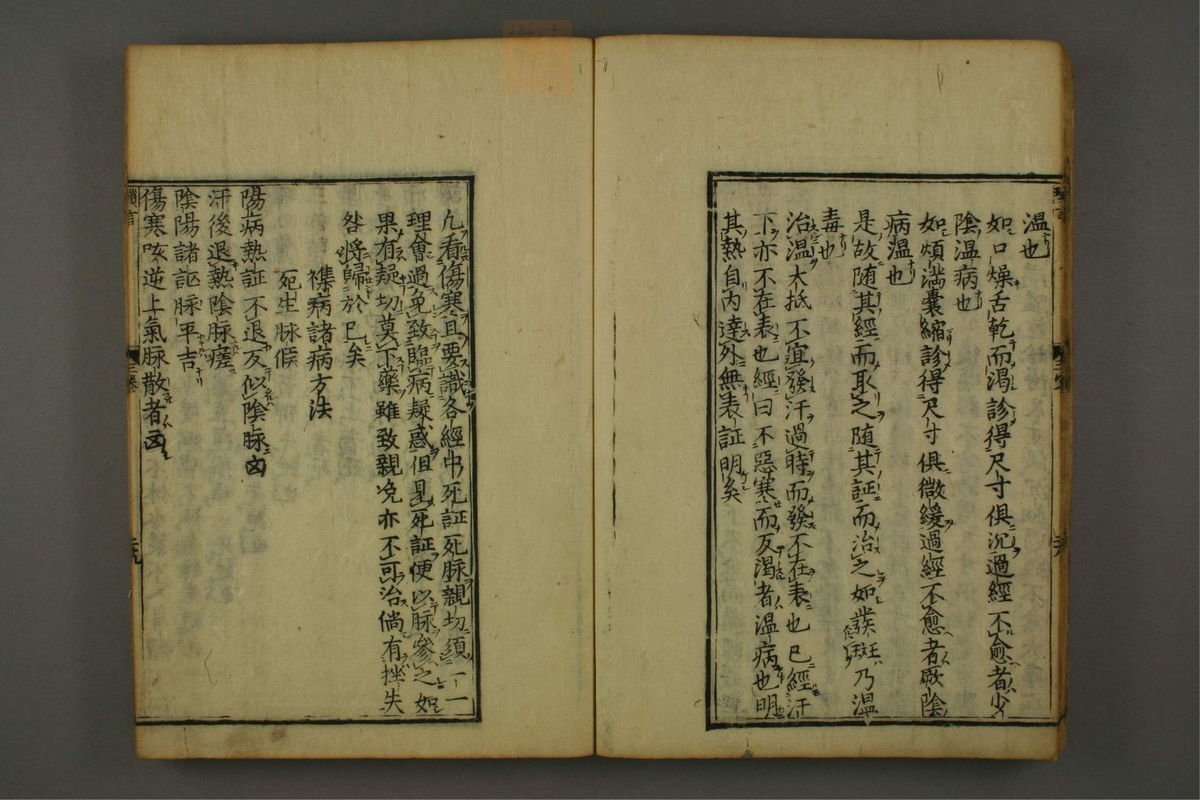 温也
如口燥舌乾而渴診得尺寸俱沉過經不愈者少
陰温病也
如煩滿囊縮診得尺寸俱微緩過經不愈者厥陰
病温也
是故随其經而取之随其証而治之如發斑乃温
毒也
治温大抵不宜發汗過時而發不在表也已經汗
下亦不在表也經曰不惡寒而反渴者温病也明
其熱自內達外無表証明矣
凢看傷寒且要識各經中死証死脉親切須一一
理會過免致臨病疑惑但見死証便以脉參之如
果有疑切莫下藥雖致親免亦不可治倘有挫失
咎將歸於已矣
襍病諸病方法
死生脉候
陽病熱証不退反似陰脉凶
汗後退熱陰脉瘥
陰陽諸証脉平吉
傷寒咳逆上氣脉散者凶